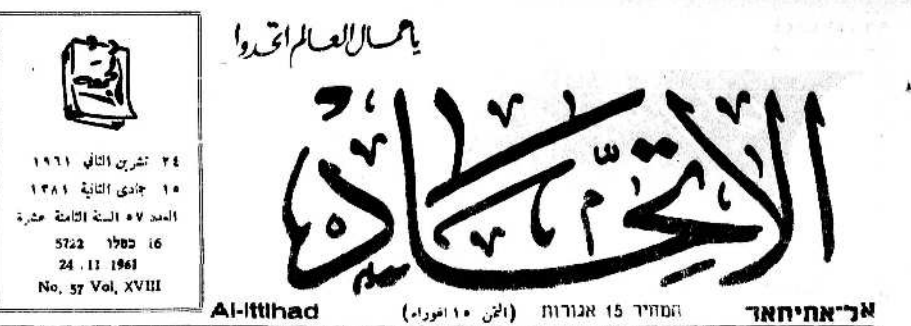 يا عمال العالم اتحدوا
الاتحاد
٢٤ تشرين الثاني ١٩٦١
١٥ جمادى الثانية ١٣٨١
العدد ٥٧ السنة الثامنة عشرة
16 כסלו 5722
24 . 11 1961
No, 57 Vol, XVIII
Al-Ittihad (الثمن ١٥ اغورة) המחיר 15 אגורות אל־אתיחאד